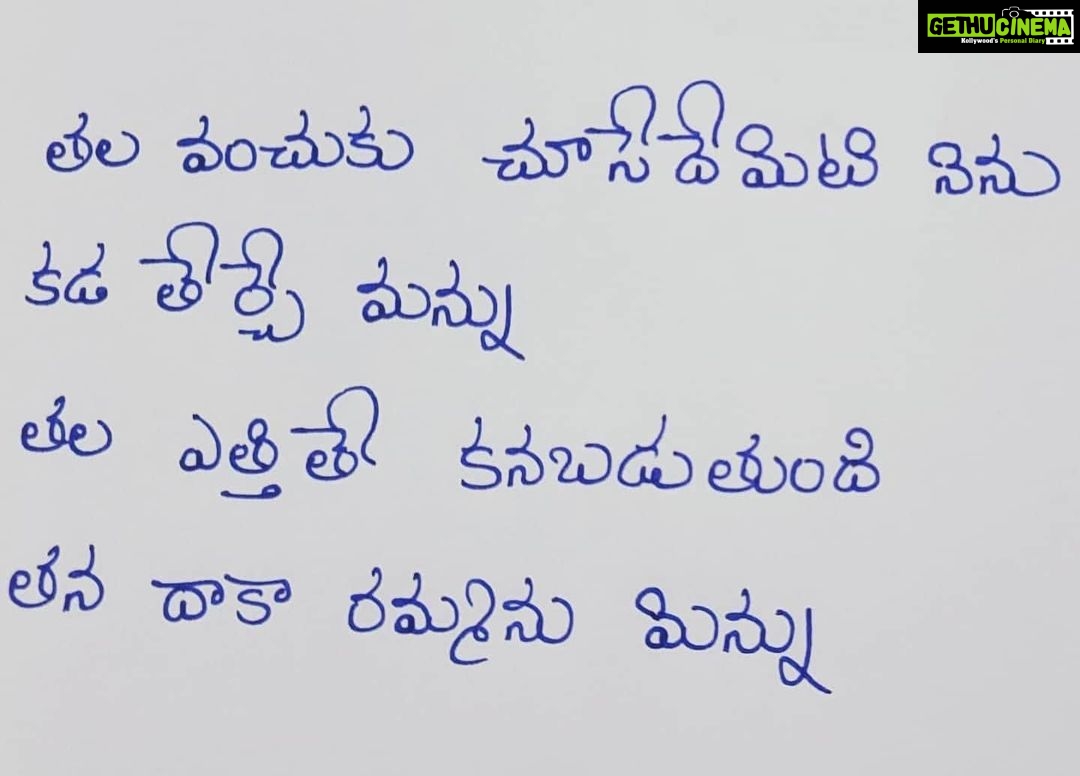 GETHUCINEMA
Kollywood's Personal Diary
తల వంచుకు చూసేదేమిటి నెను
కడ తేర్చే మన్ను
తల ఎత్తితే కనబడుతుంది
తన దాకా రమ్మను మిన్ను